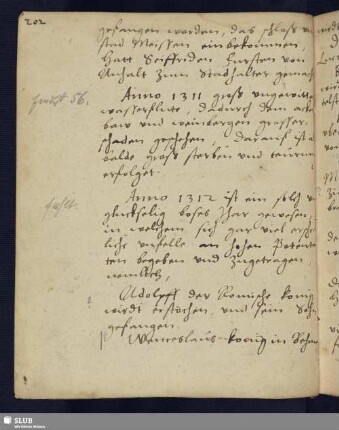 202
gefangen worden, das schlos und
stad Meissen einbekommen,
hatt Seiffriden Fursten von
Anhalt zum Stadhalter gemacht
Anno 1311 gross ungewitter
wasserflutt, dadurch dem acker
baw und weinbergen grosser
schaden geschehen, darauf ist
balde gross sterben und teurung
erfolget.
Anno 1312 ist ein solch un
gluckselig böses Jhar gewesen,
in welchem sich gar viel
liche unfelle an hohen Potenta
ten begeben und zugetragen
nemlich,
Adolpff der Romische konig
wirdt erstochen, und sein Sohn
gefangen.
Wenceslaus konig in Behem
SLUB